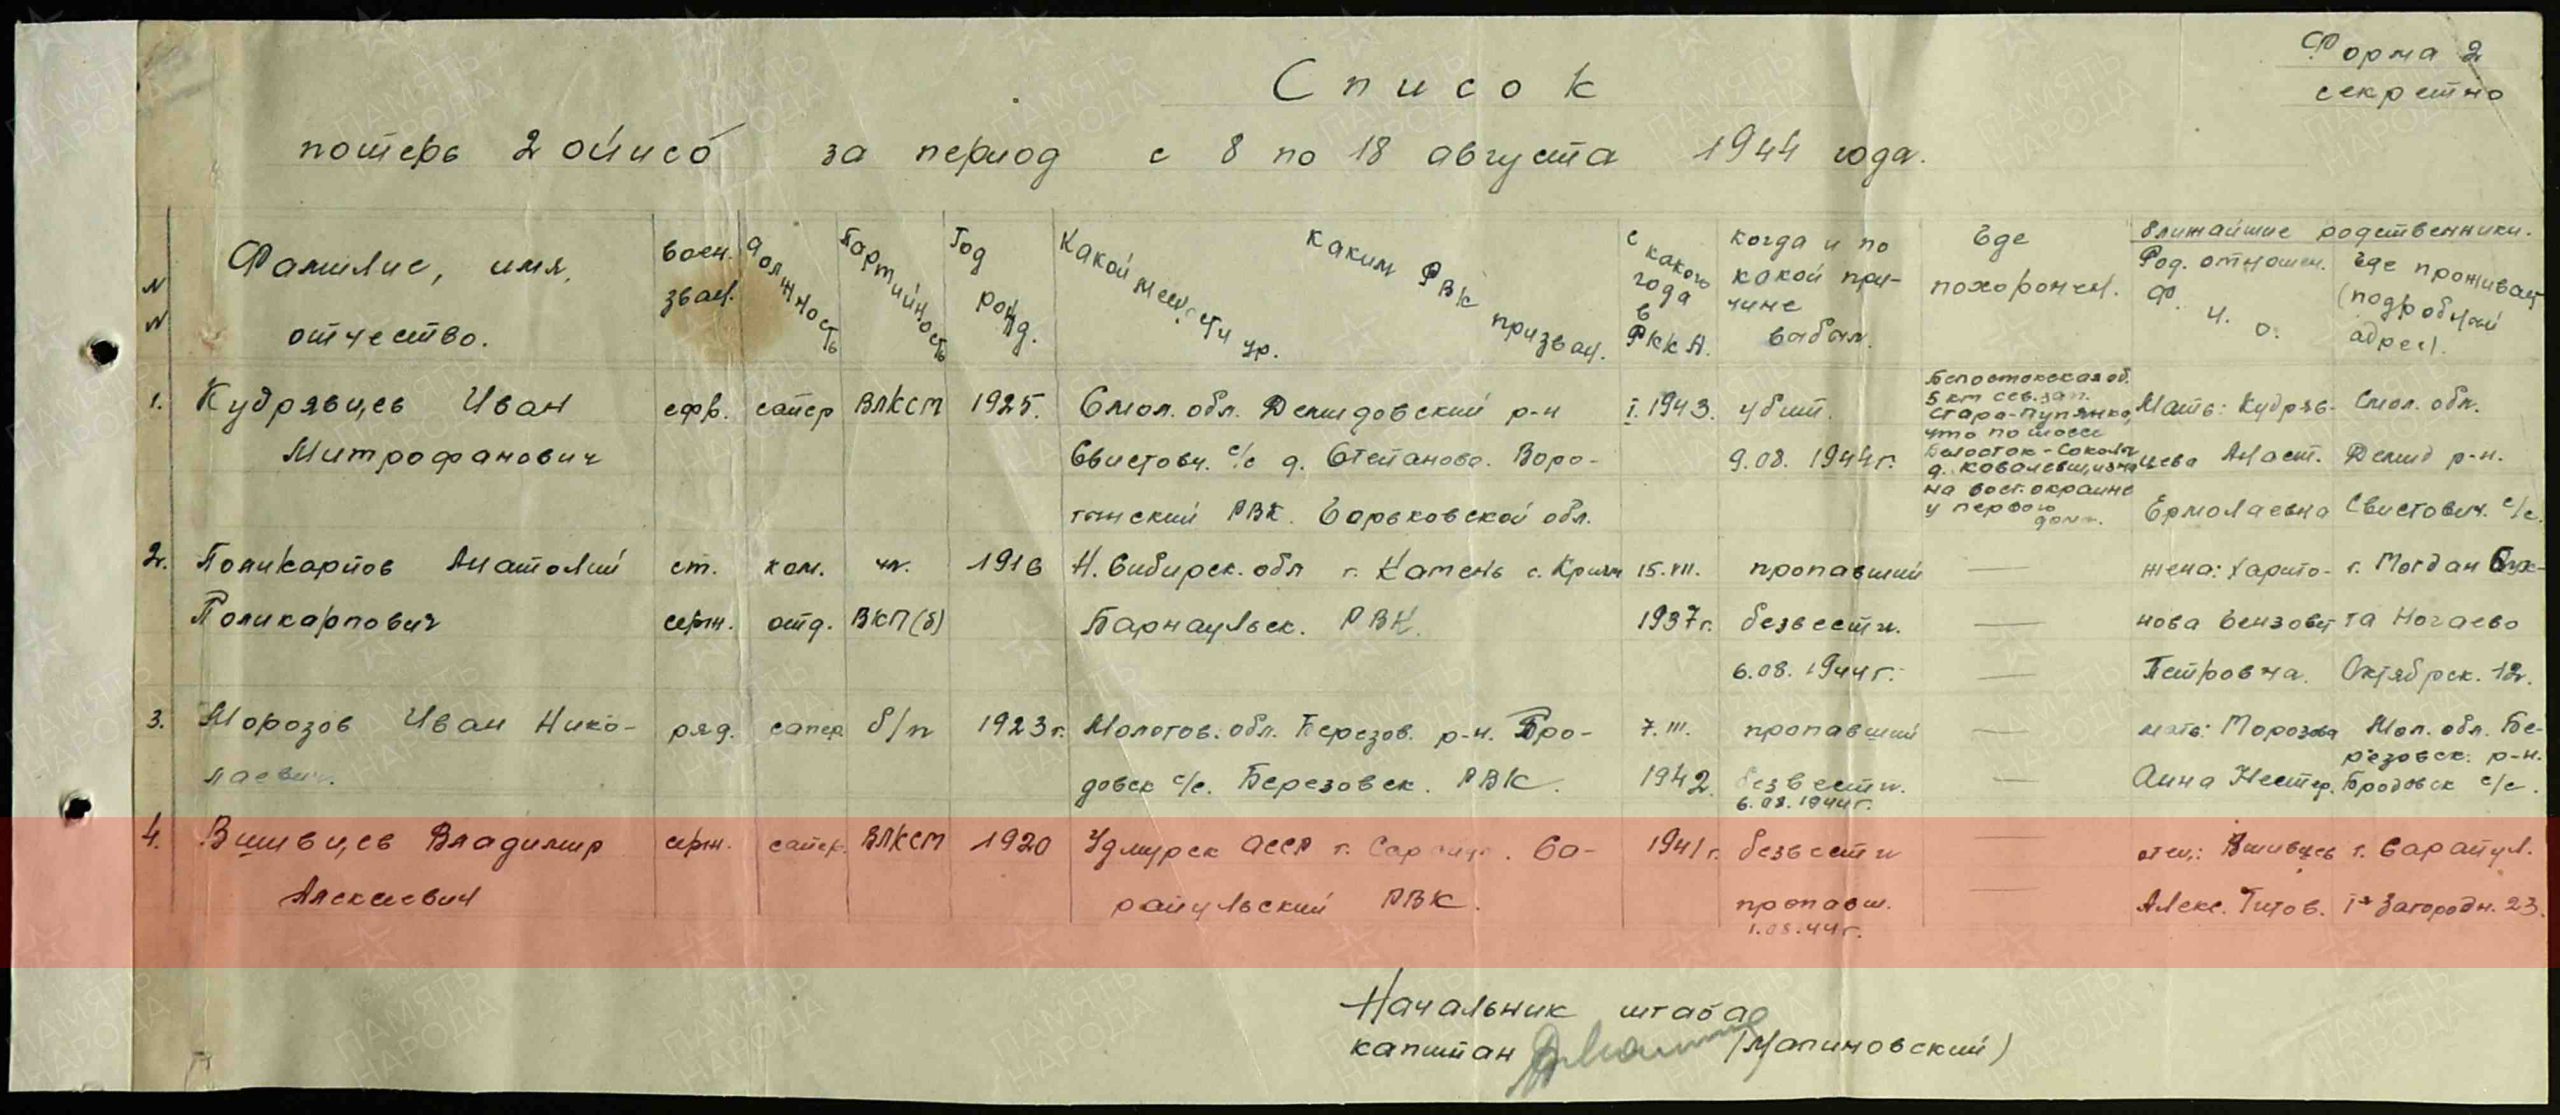 Форма 2
секретно
Список
потерь 2 оиисб за период с 8 по 18 августа 1944 года.
NN
Фамилие, имя, отчество.
воен. зван.
должность
Партийность
Год рожд.
Какой местности ур.
каким РВК призван.
с какого года в РККА.
когда и по какой при-
чине выбыл.
Где похоронен.
ближайшие родственники.
Род. отношен. Ф. И. О.
Где проживает (подробный адрес).
1. Кудрявцев Иван ефр. сапер ВЛКСМ 1925. Смол. обл. Демидовский р-н I.1943. убит. Мать: Кудряв- Смол. обл.
Белостокская об.
5 км сев.зап.
Стара-Пупянка,
что по шоссе
Белосток-Сокол
д. Ковалевщизна
на вост. окраине
у первого
дома.
Митрофанович Свистович. с/с д. Степаново. Воро- 9.08.1944г. цева Анаст. Демид р-н.
тынский РВК. Горьковской обл. Ермолаевна Свистович. с/с.
2. Поликарпов Анатолий ст. ком. чл. 1916 Н. Сибирск. обл г. Камень с. 15.VII. пропавший — жена: Харито- г. Магдан
Поликарпович серж. отд. ВКП(б) Барнаульск. РВК. 1937г. безвести. — нова та Ногаево
6.08.1944г. — Петровна. Октябрск. 12.
3. Морозов Иван Нико- ряд. сапер б/п 1923г. Молотов. обл. Березов. р-н. Бро- 7.III. пропавший — мать: Морозова Мол. обл. Бе-
резовск. р-н.
лаевич. довск с/с. Березовск. РВК. 1942. безвести. — Анна Нестер. Бродовск с/с.
6.08.1944г.
4. Вшивцев Владимир серж. сапер. ВЛКСМ 1920 Удмурск АССР г. Сарапул. Са- 1941г. безвести — отец: Вшивцев г. Сарапул.
Алексеевич рапульский РВК. пропавш. — Алекс. Титов. 1я Загородн. 23.
1.08.44г.
Начальник штаба
капитан (Малиновский)
ПАМЯТЬ НАРОДА